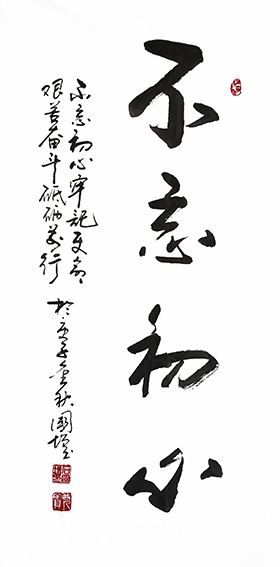 不忘初心
不忘初心牢記使命
艰苦奮斗砥砺前行
於庚子金秋國